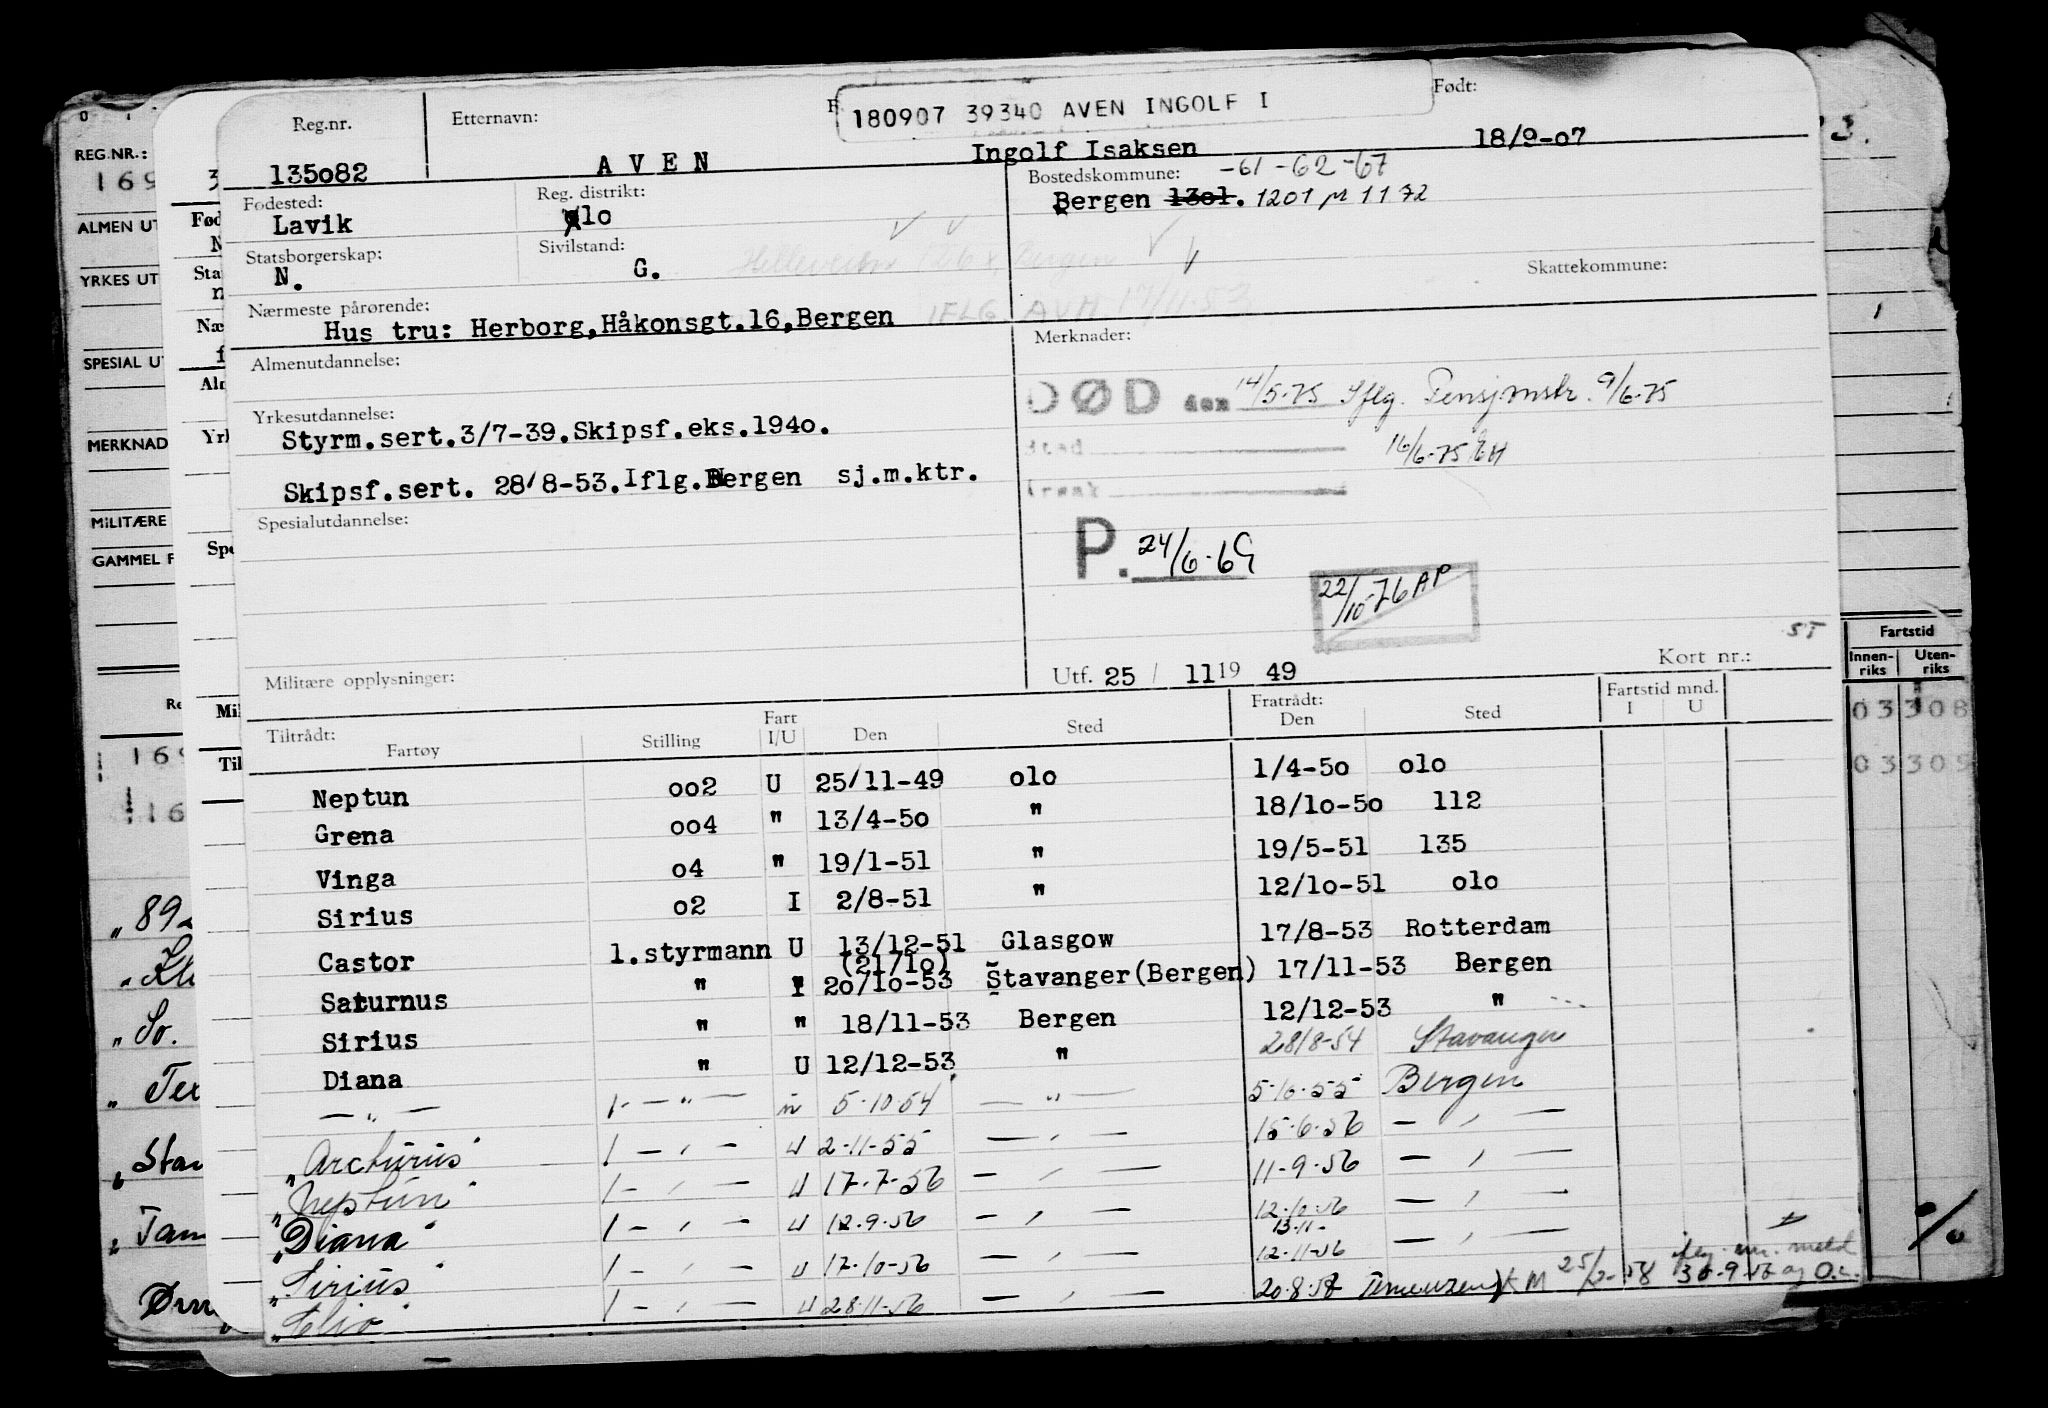 180907 39340 AVEN INGOLF I
Reg.nr. Etternavn: Født:
135082 AVEN Ingolf Isaksen 18/9-07
Fødested: Reg. distrikt: Bostedskommune: -61-62-67
Lavik olo Bergen 1301. 1201 M 11 72
Statsborgerskap: Sivilstand:
N. G. Skattekommune:
Nærmeste pårørende:
Hus tru: Herborg,Håkonsgt.16,Bergen IFLG. AVM 17/11-53
Almenutdannelse: Merknader:
DØD den 14/5-75 Iflg. Pensjonstr. 9/6-75
Yrkesutdannelse:
Styrm.sert.3/7-39.Skipsf.eks.1940.
Sted 16/6-75 EH
Skipsf.sert. 28/8-53.Iflg.Bergen sj.m.ktr.
Årsak
Spesialutdannelse:
P. 24/6-69
22/10-76 AP
ST
Militære opplysninger: Utf. 25 / 11 19 49 Kort nr.:
Tiltrådt: Fart Fratrådt: Fartstid mnd.
Fartøy Stilling I/U Den Sted Den Sted I U
Neptun 002 U 25/11-49 olo 1/4-50 olo
Grena 004 " 13/4-50 " 18/10-50 112
Vinga 04 " 19/1-51 " 19/5-51 135
Sirius 02 I 2/8-51 " 12/10-51 olo
Castor 1.styrmann U 13/12-51 Glasgow 17/8-53 Rotterdam
(21/10)
Saturnus " I 20/10-53 Stavanger(Bergen) 17/11-53 Bergen
Sirius " " 18/11-53 Bergen 12/12-53 "
Diana " U 12/12-53 " 28/8-54 Stavanger
— " — 1 — " — u 5-10-54 — " — 5-10-55 Bergen
"Arcturus" 1 — " — U 2-11-55 — " — 15-6-56 — " —
"Neptun" 1 — " — U 17-7-56 — " — 11-9-56 — " —
"Diana" 1 — " — U 12.9.56 — " — 12-10-56 — " —
13-11-
"Sirius" 1 — " — U 17-10-56 — " — 12-11-56 — " —
"Clio" 1 — " — U 28-11-56 — " — 20.8.57 KM 25/2-58 iflg. nr. meld 30-9-57
REG.NR.:
169
ALMEN UT
YRKES UT
SPESIAL UT
MERKNAD
MILITÆRE
GAMMEL F
Fød
Sta
Næ
Aln
Yrk
Spe
Mil
Til
169
"892
"So.
"Star
"Tam
Fartstid
Innen-riks Uten-riks
03 308
03 309